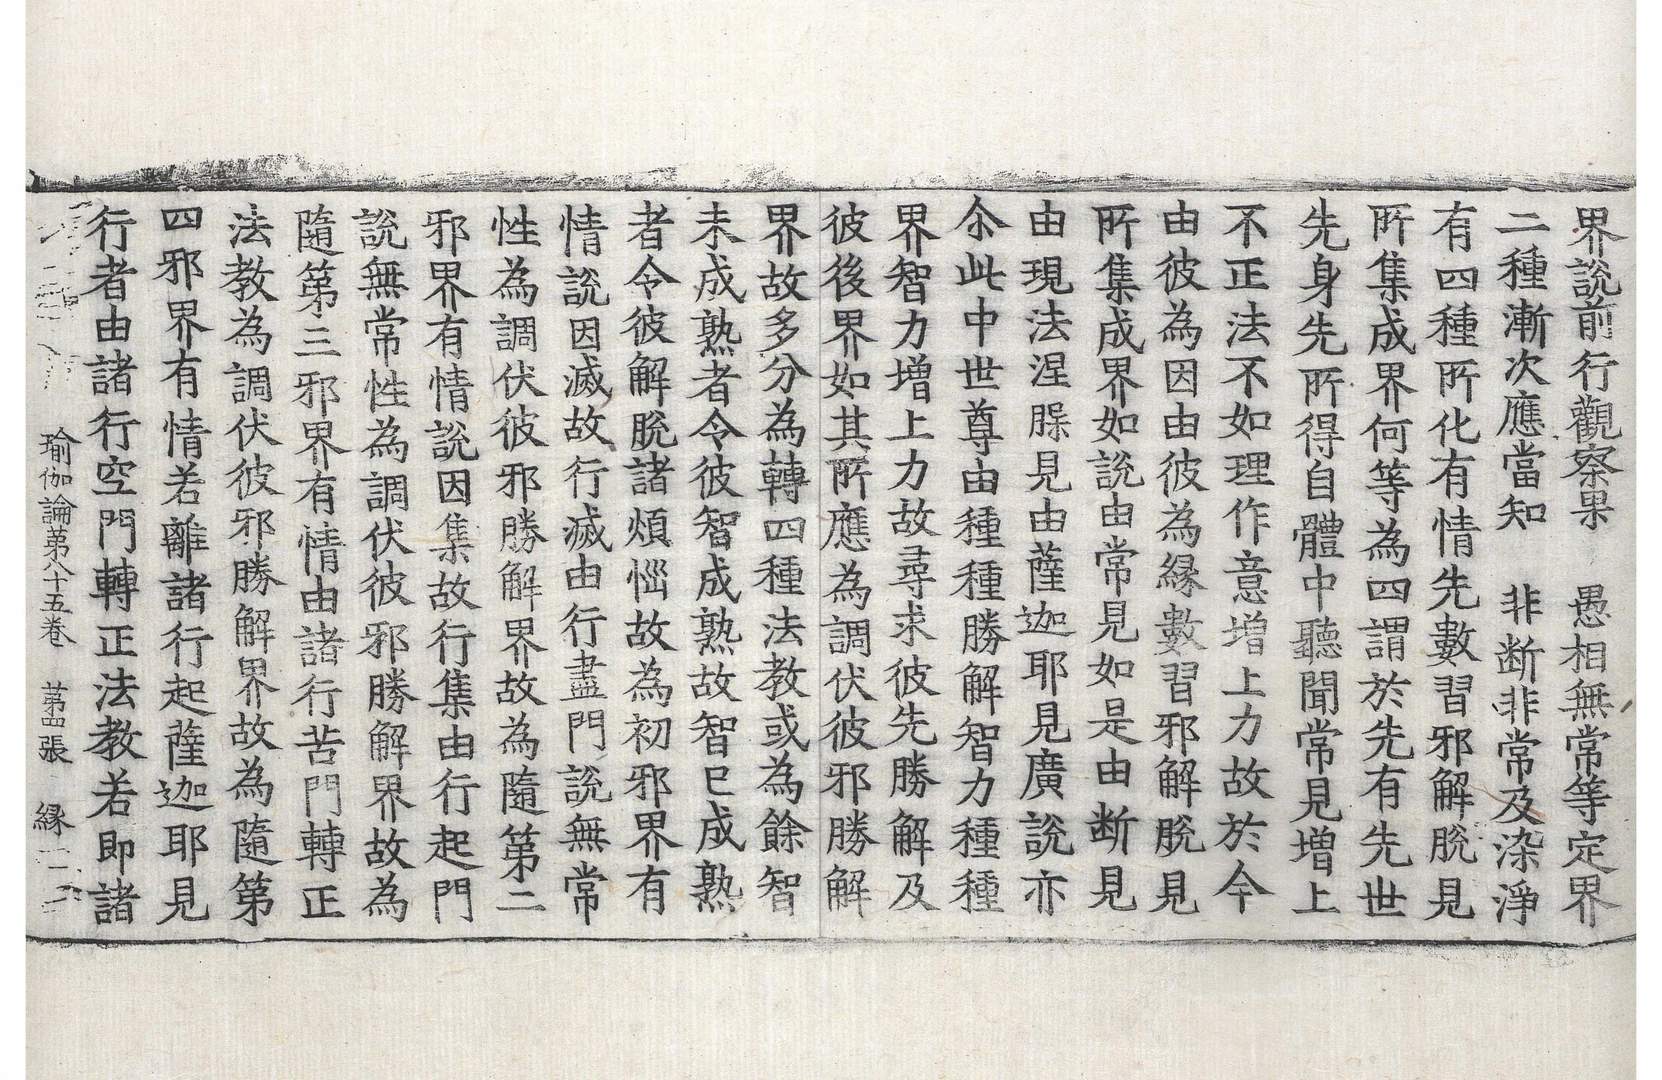 界說前行觀察果　愚相無常等定界
二種漸次應當知　非断非常及染淨
有四種所化有情先數習邪解脫見
所集成界何等為四謂於先有先世
先身先所得自體中聽聞常見增上
不正法不如理作意增上力故於今
由彼為因由彼為緣數習邪解脫見
所集成界如說由常見如是由断見
由現法涅槃見由薩迦耶見廣說亦
尒此中世尊由種種勝解智力種種
界智力增上力故尋求彼先勝解及
彼後界如其所應為調伏彼邪勝解
界故多分為轉四種法教或為餘智
未成熟者令彼智成熟故智已成熟
者令彼解脫諸煩惱故為初邪界有
情說因滅故行滅由行盡門說無常
性為調伏彼邪勝解界故為隨第二
邪界有情說因集故行集由行起門
說無常性為調伏彼邪勝解界故為
隨第三邪界有情由諸行苦門轉正
法教為調伏彼邪勝解界故為隨第
四邪界有情若離諸行起薩迦耶見
行者由諸行空門轉正法教若即諸
瑜伽論第八十五卷　第四張　緣